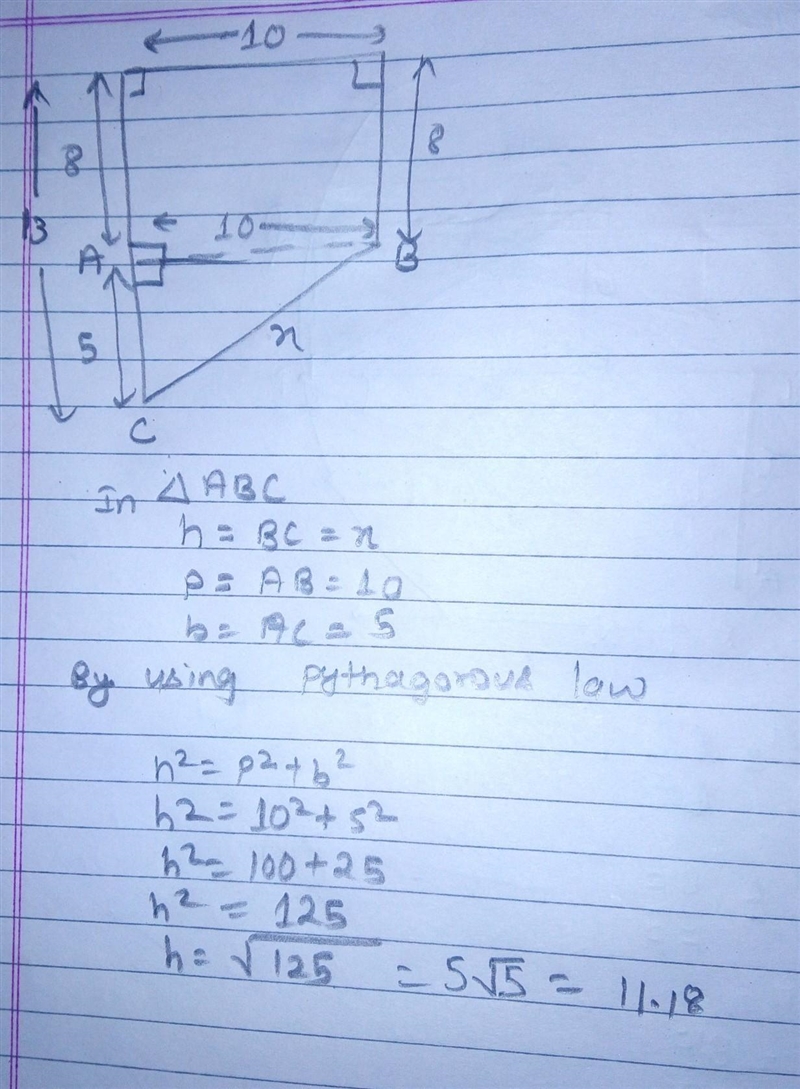 10
8
8
13
10
A
B
5
x
C
In △ ABC
h = BC = x
p = AB = 10
b = AC = 5
By using pythagorous law
h² = p² + b²
h² = 10² + 5²
h² = 100 + 25
h² = 125
h = √125 = 5√5 = 11.18